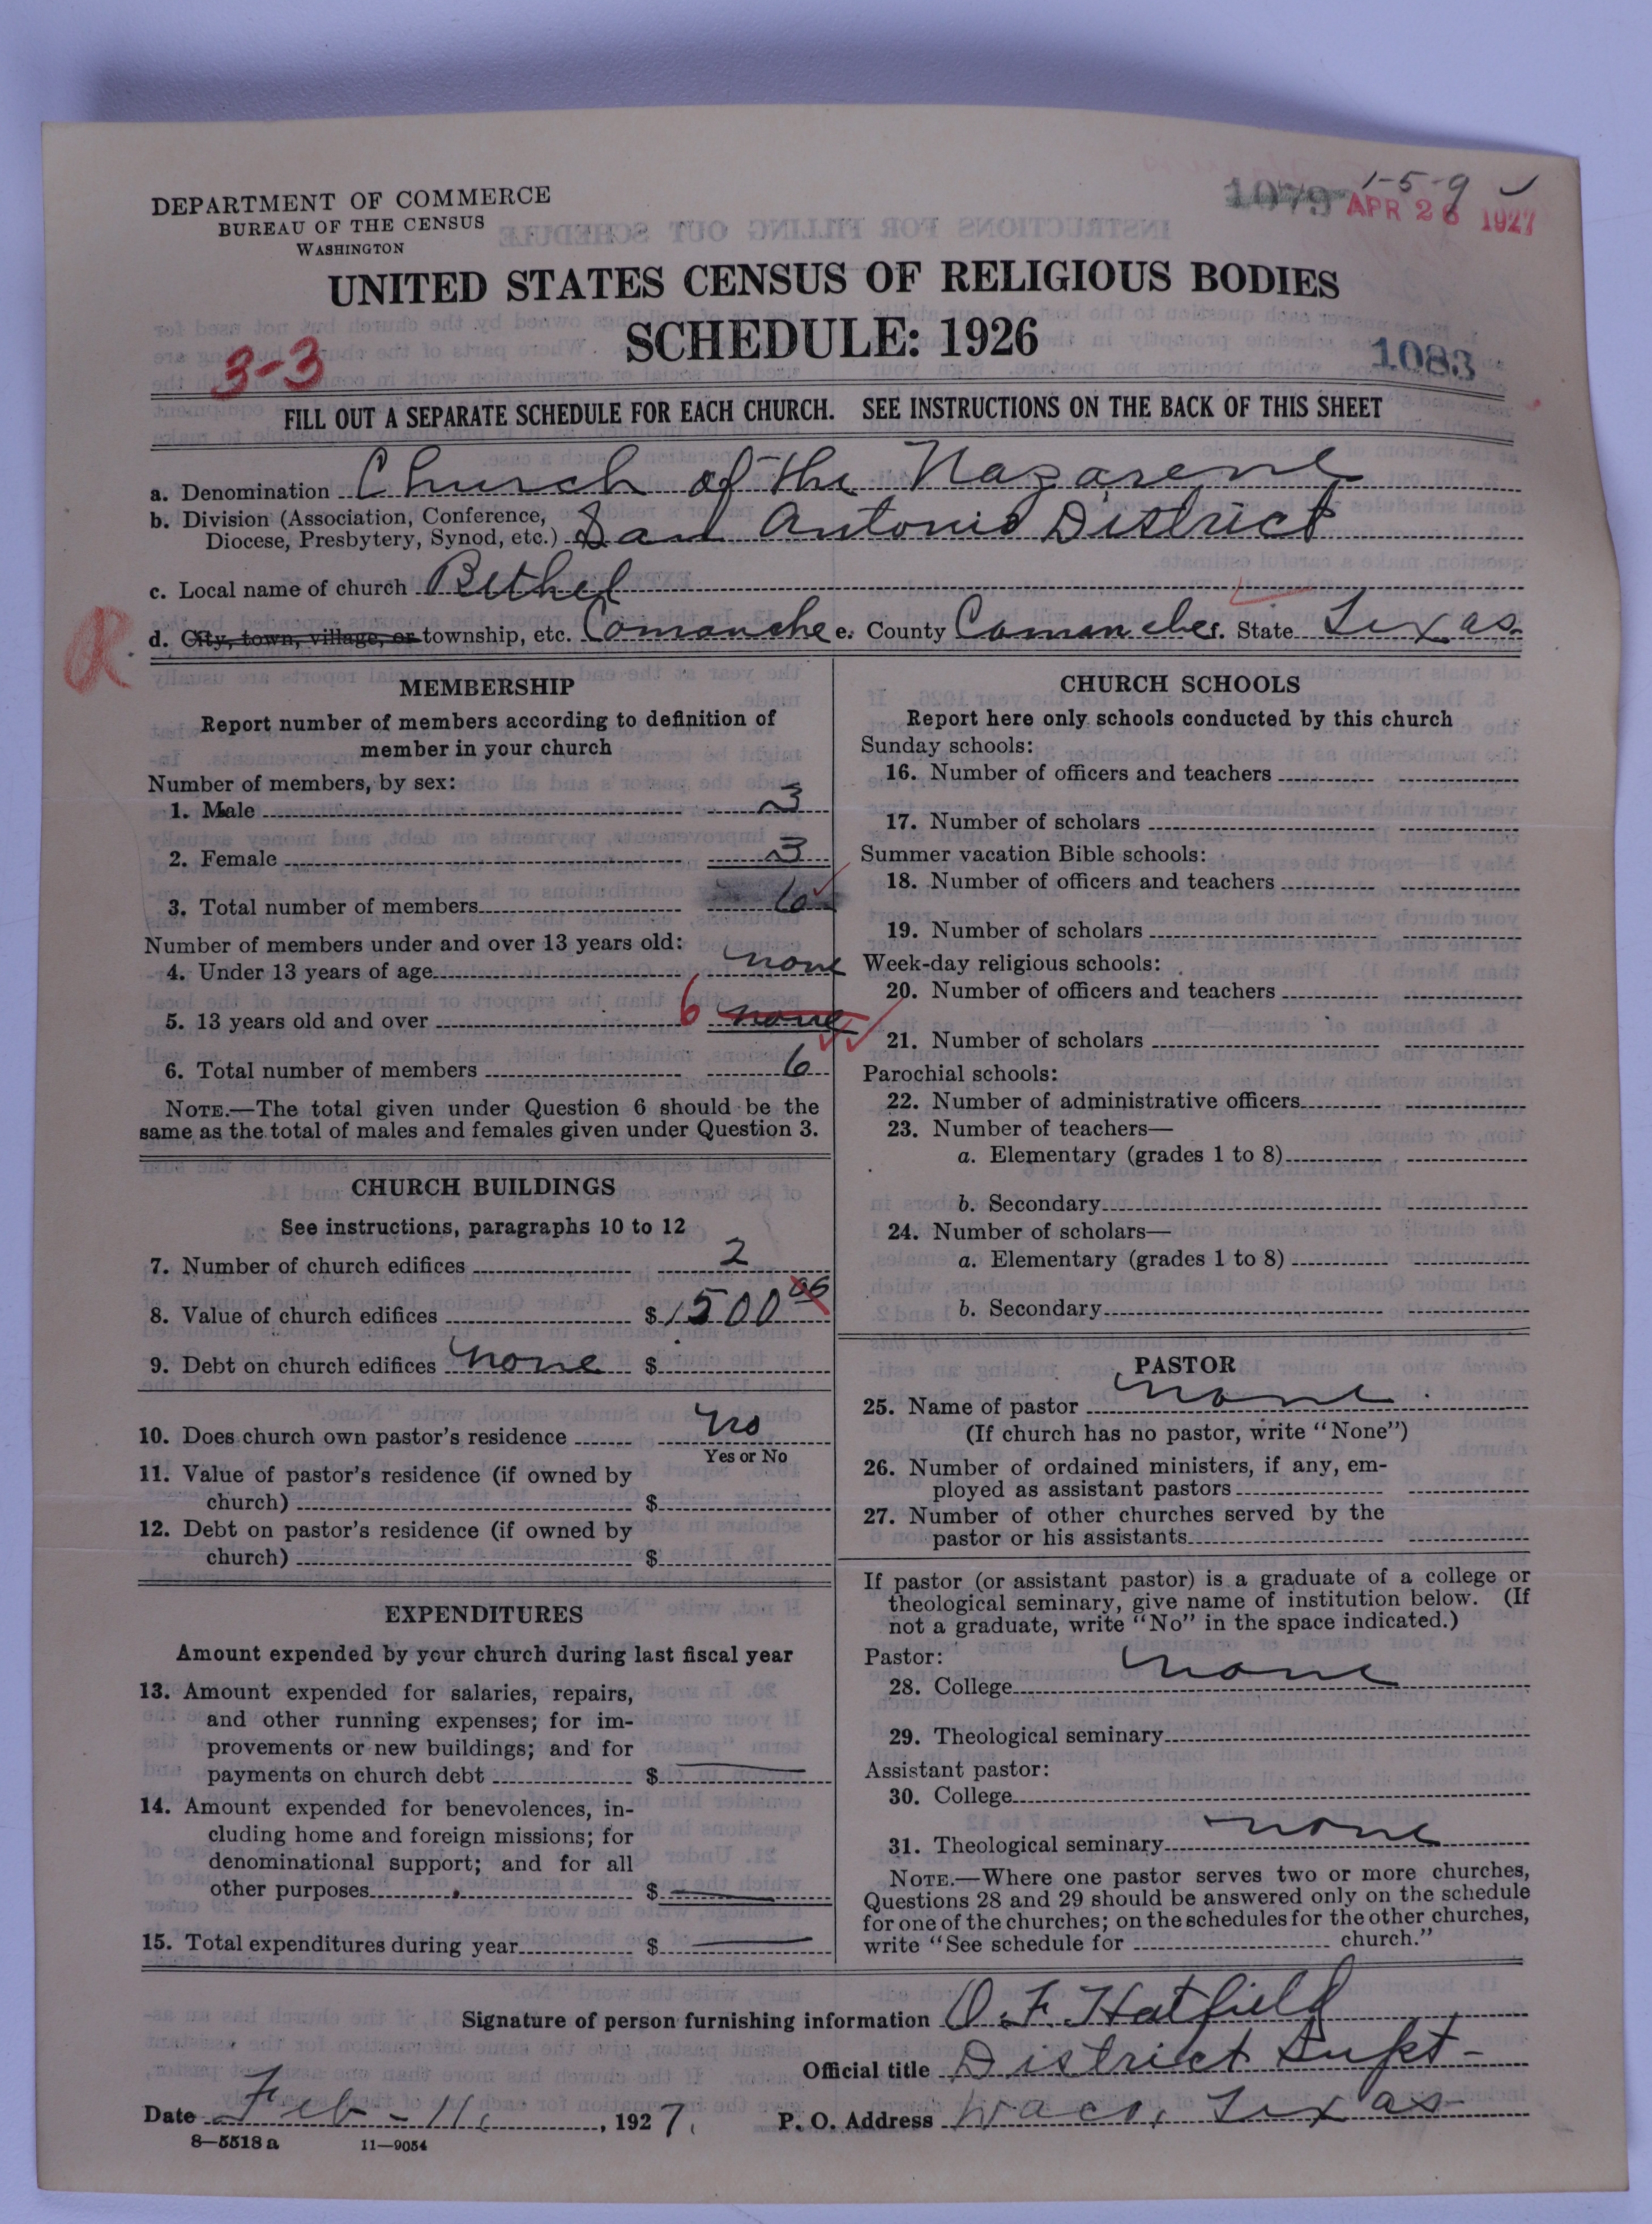 DEPARTMENT OF COMMERCE
BUREAU OF THE CENSUS
WASHINGTON
1079 1-5-9
APR 26 1927
UNITED STATES CENSUS OF RELIGIOUS BODIES
SCHEDULE: 1926
3-3
1083
FILL OUT A SEPARATE SCHEDULE FOR EACH CHURCH. SEE INSTRUCTIONS ON THE BACK OF THIS SHEET
a. Denomination Church of the Nazarene
b. Division (Association, Conference,
Diocese, Presbytery, Synod, etc.) San Antonio District
c. Local name of church Bethel
R
d. City, town, village, or township, etc. Comanche e. County Comanche f. State Texas
MEMBERSHIP
Report number of members according to definition of
member in your church
Number of members, by sex:
1. Male 3
2. Female 3
3. Total number of members 6
Number of members under and over 13 years old:
4. Under 13 years of age none
5. 13 years old and over 6 none
6. Total number of members 6
NOTE.—The total given under Question 6 should be the
same as the total of males and females given under Question 3.
CHURCH BUILDINGS
See instructions, paragraphs 10 to 12
7. Number of church edifices 2
8. Value of church edifices $ 1500 00
9. Debt on church edifices none $
10. Does church own pastor's residence no
Yes or No
11. Value of pastor's residence (if owned by
church) $
12. Debt on pastor's residence (if owned by
church) $
EXPENDITURES
Amount expended by your church during last fiscal year
13. Amount expended for salaries, repairs,
and other running expenses; for im-
provements or new buildings; and for
payments on church debt $
14. Amount expended for benevolences, in-
cluding home and foreign missions; for
denominational support; and for all
other purposes $
15. Total expenditures during year $
CHURCH SCHOOLS
Report here only schools conducted by this church
Sunday schools:
16. Number of officers and teachers
17. Number of scholars
Summer vacation Bible schools:
18. Number of officers and teachers
19. Number of scholars
Week-day religious schools:
20. Number of officers and teachers
21. Number of scholars
Parochial schools:
22. Number of administrative officers
23. Number of teachers—
a. Elementary (grades 1 to 8)
b. Secondary
24. Number of scholars—
a. Elementary (grades 1 to 8)
b. Secondary
PASTOR
25. Name of pastor none
(If church has no pastor, write "None")
26. Number of ordained ministers, if any, em-
ployed as assistant pastors
27. Number of other churches served by the
pastor or his assistants
If pastor (or assistant pastor) is a graduate of a college or
theological seminary, give name of institution below. (If
not a graduate, write "No" in the space indicated.)
Pastor:
28. College none
29. Theological seminary
Assistant pastor:
30. College
31. Theological seminary none
NOTE.—Where one pastor serves two or more churches,
Questions 28 and 29 should be answered only on the schedule
for one of the churches; on the schedules for the other churches,
write "See schedule for church."
Signature of person furnishing information O. F. Hatfield
Official title District Supt-
Date Feb - 11, 1927. P. O. Address Waco, Texas
8—5518 a 11—9054